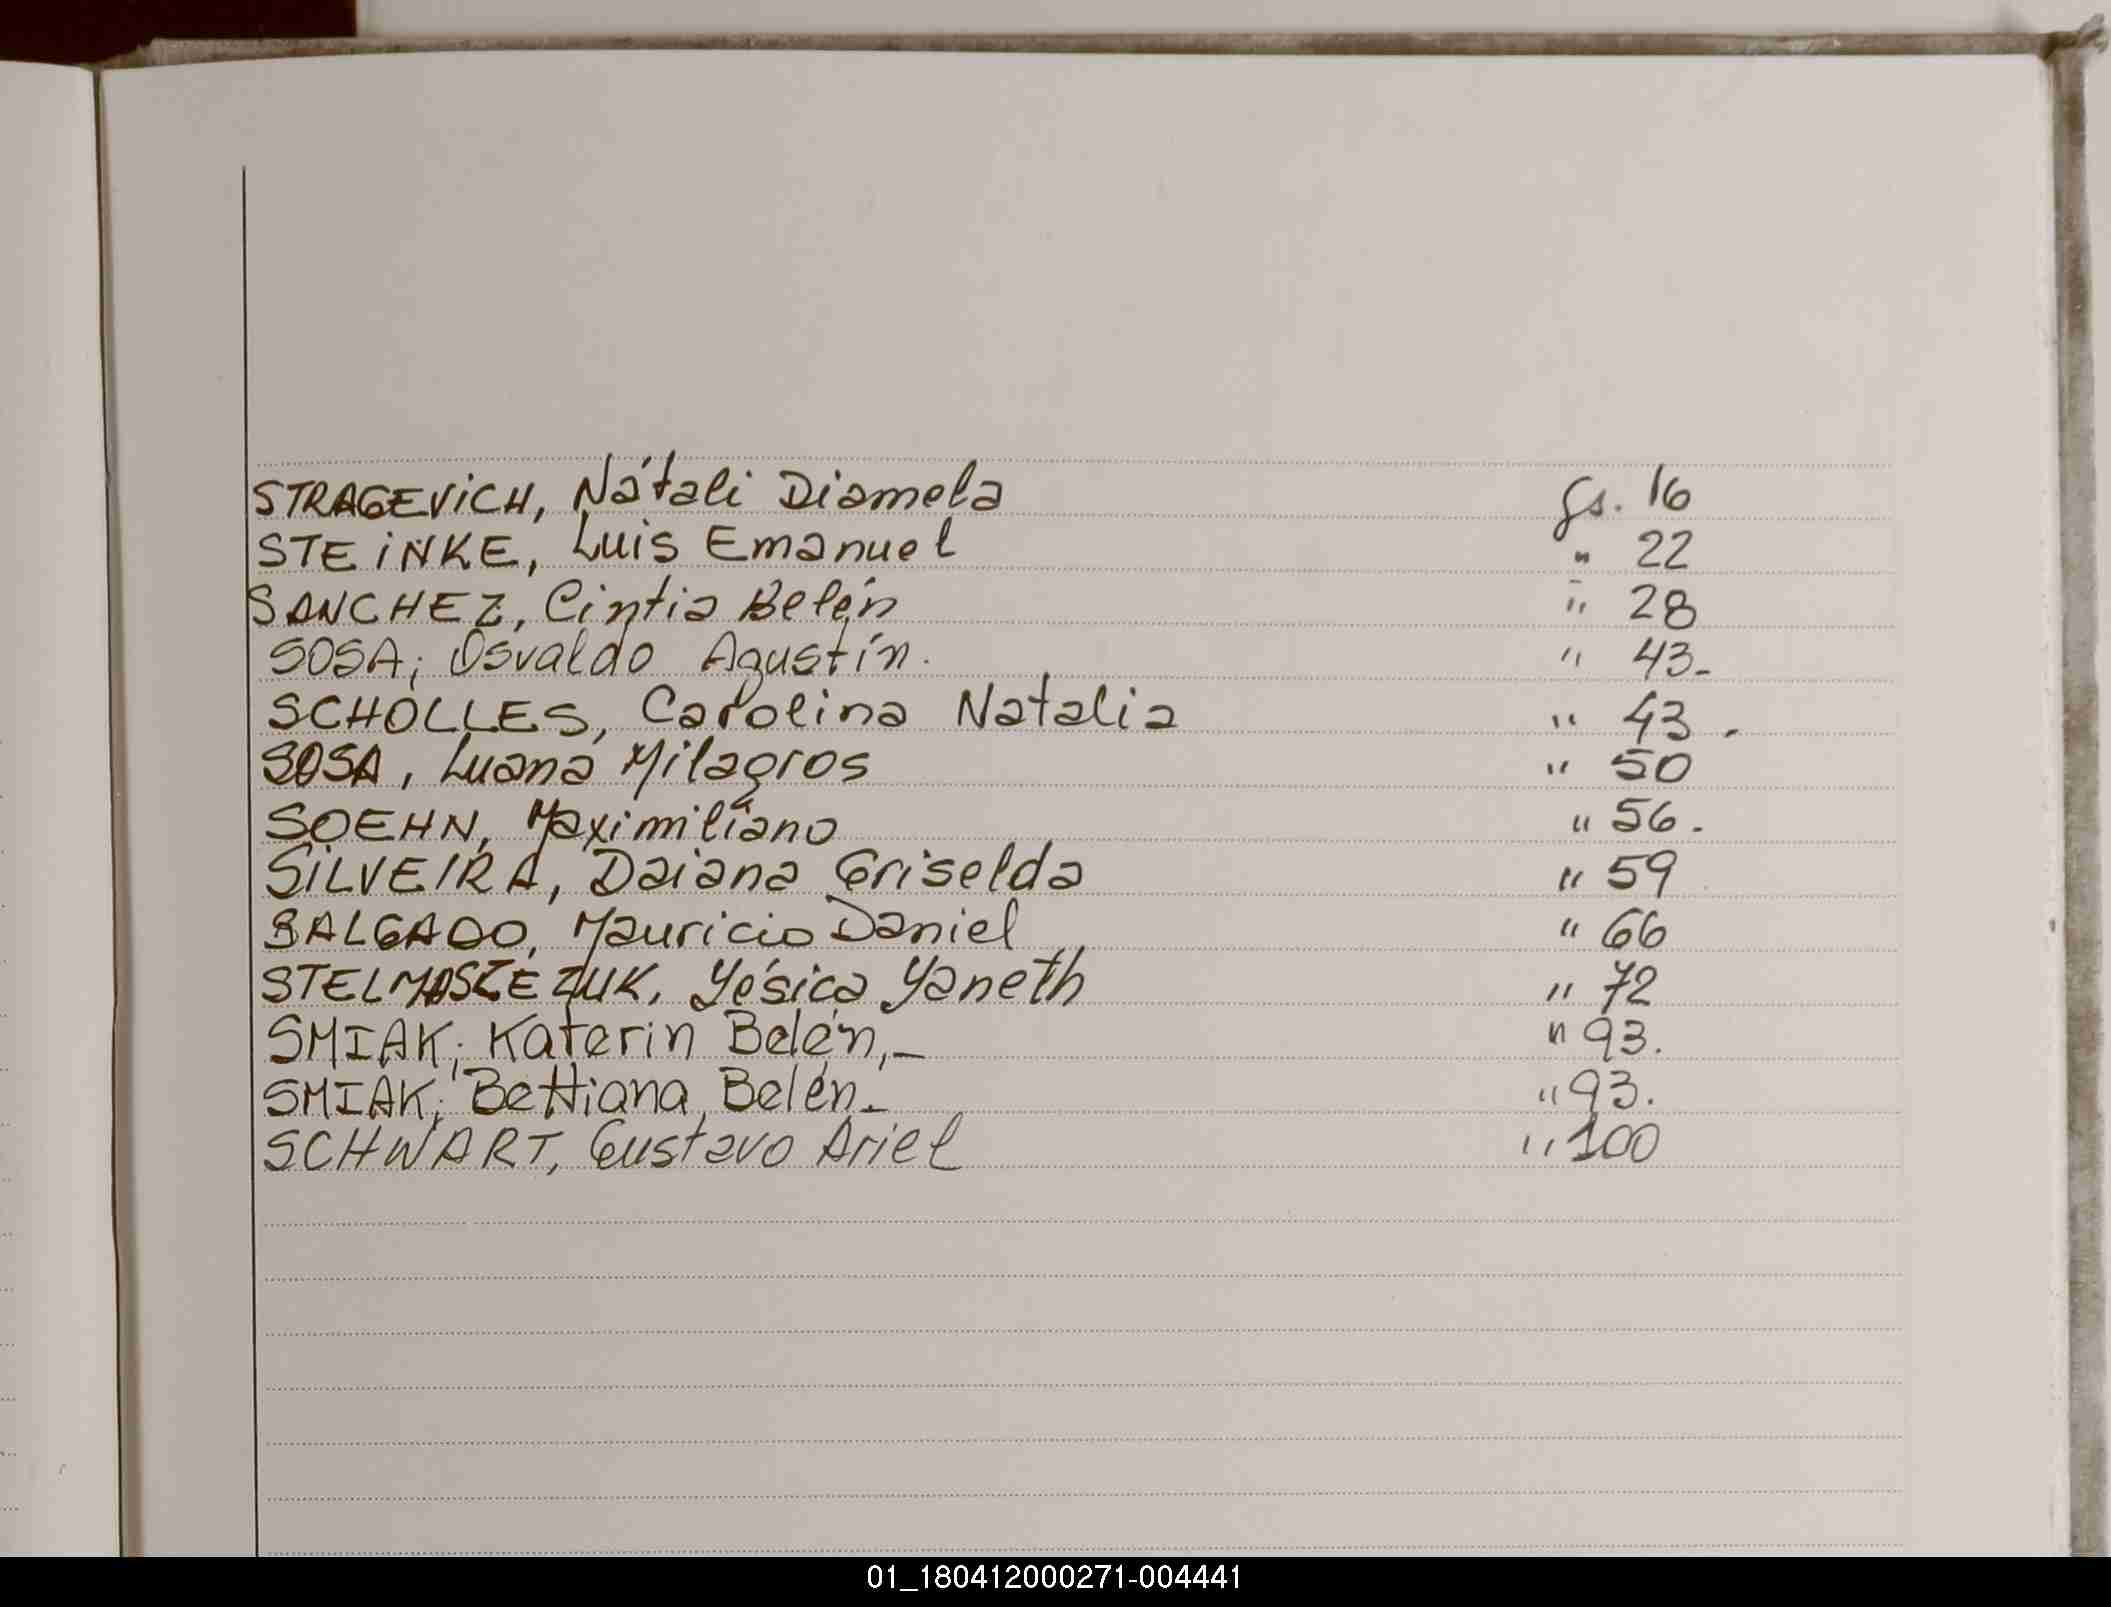 STRAGEVICH, Nátali Diamela fs. 16
STEINKE, Luis Emanuel " 22
SANCHEZ, Cintia Belén " 28
SOSA; Osvaldo Agustín. " 43-
SCHOLLES, Carolina Natalia " 43.
SOSA, Luana Milagros " 50
SOEHN, Maximiliano " 56.
SILVEIRA, Daiana Griselda " 59
SALGADO, Mauricio Daniel " 66
Yésica Yaneth " 72
SMIAK; Katerin Belén,- " 93.
SMIAK; Bettiana Belén- " 93.
SCHWART, Gustavo Ariel " 100
01_180412000271-004441